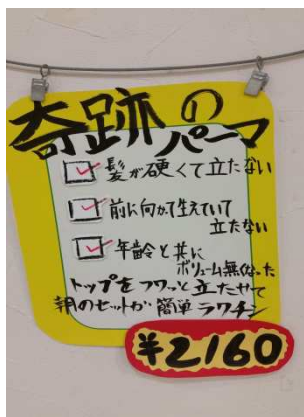 奇跡の
パーマ
髪が硬くて立たない
前に向かって生えていて
立たない
年齢と共に
ボリューム無くなった
トップをフワッと立たせて
朝のセットが簡単ラクチン
¥2160